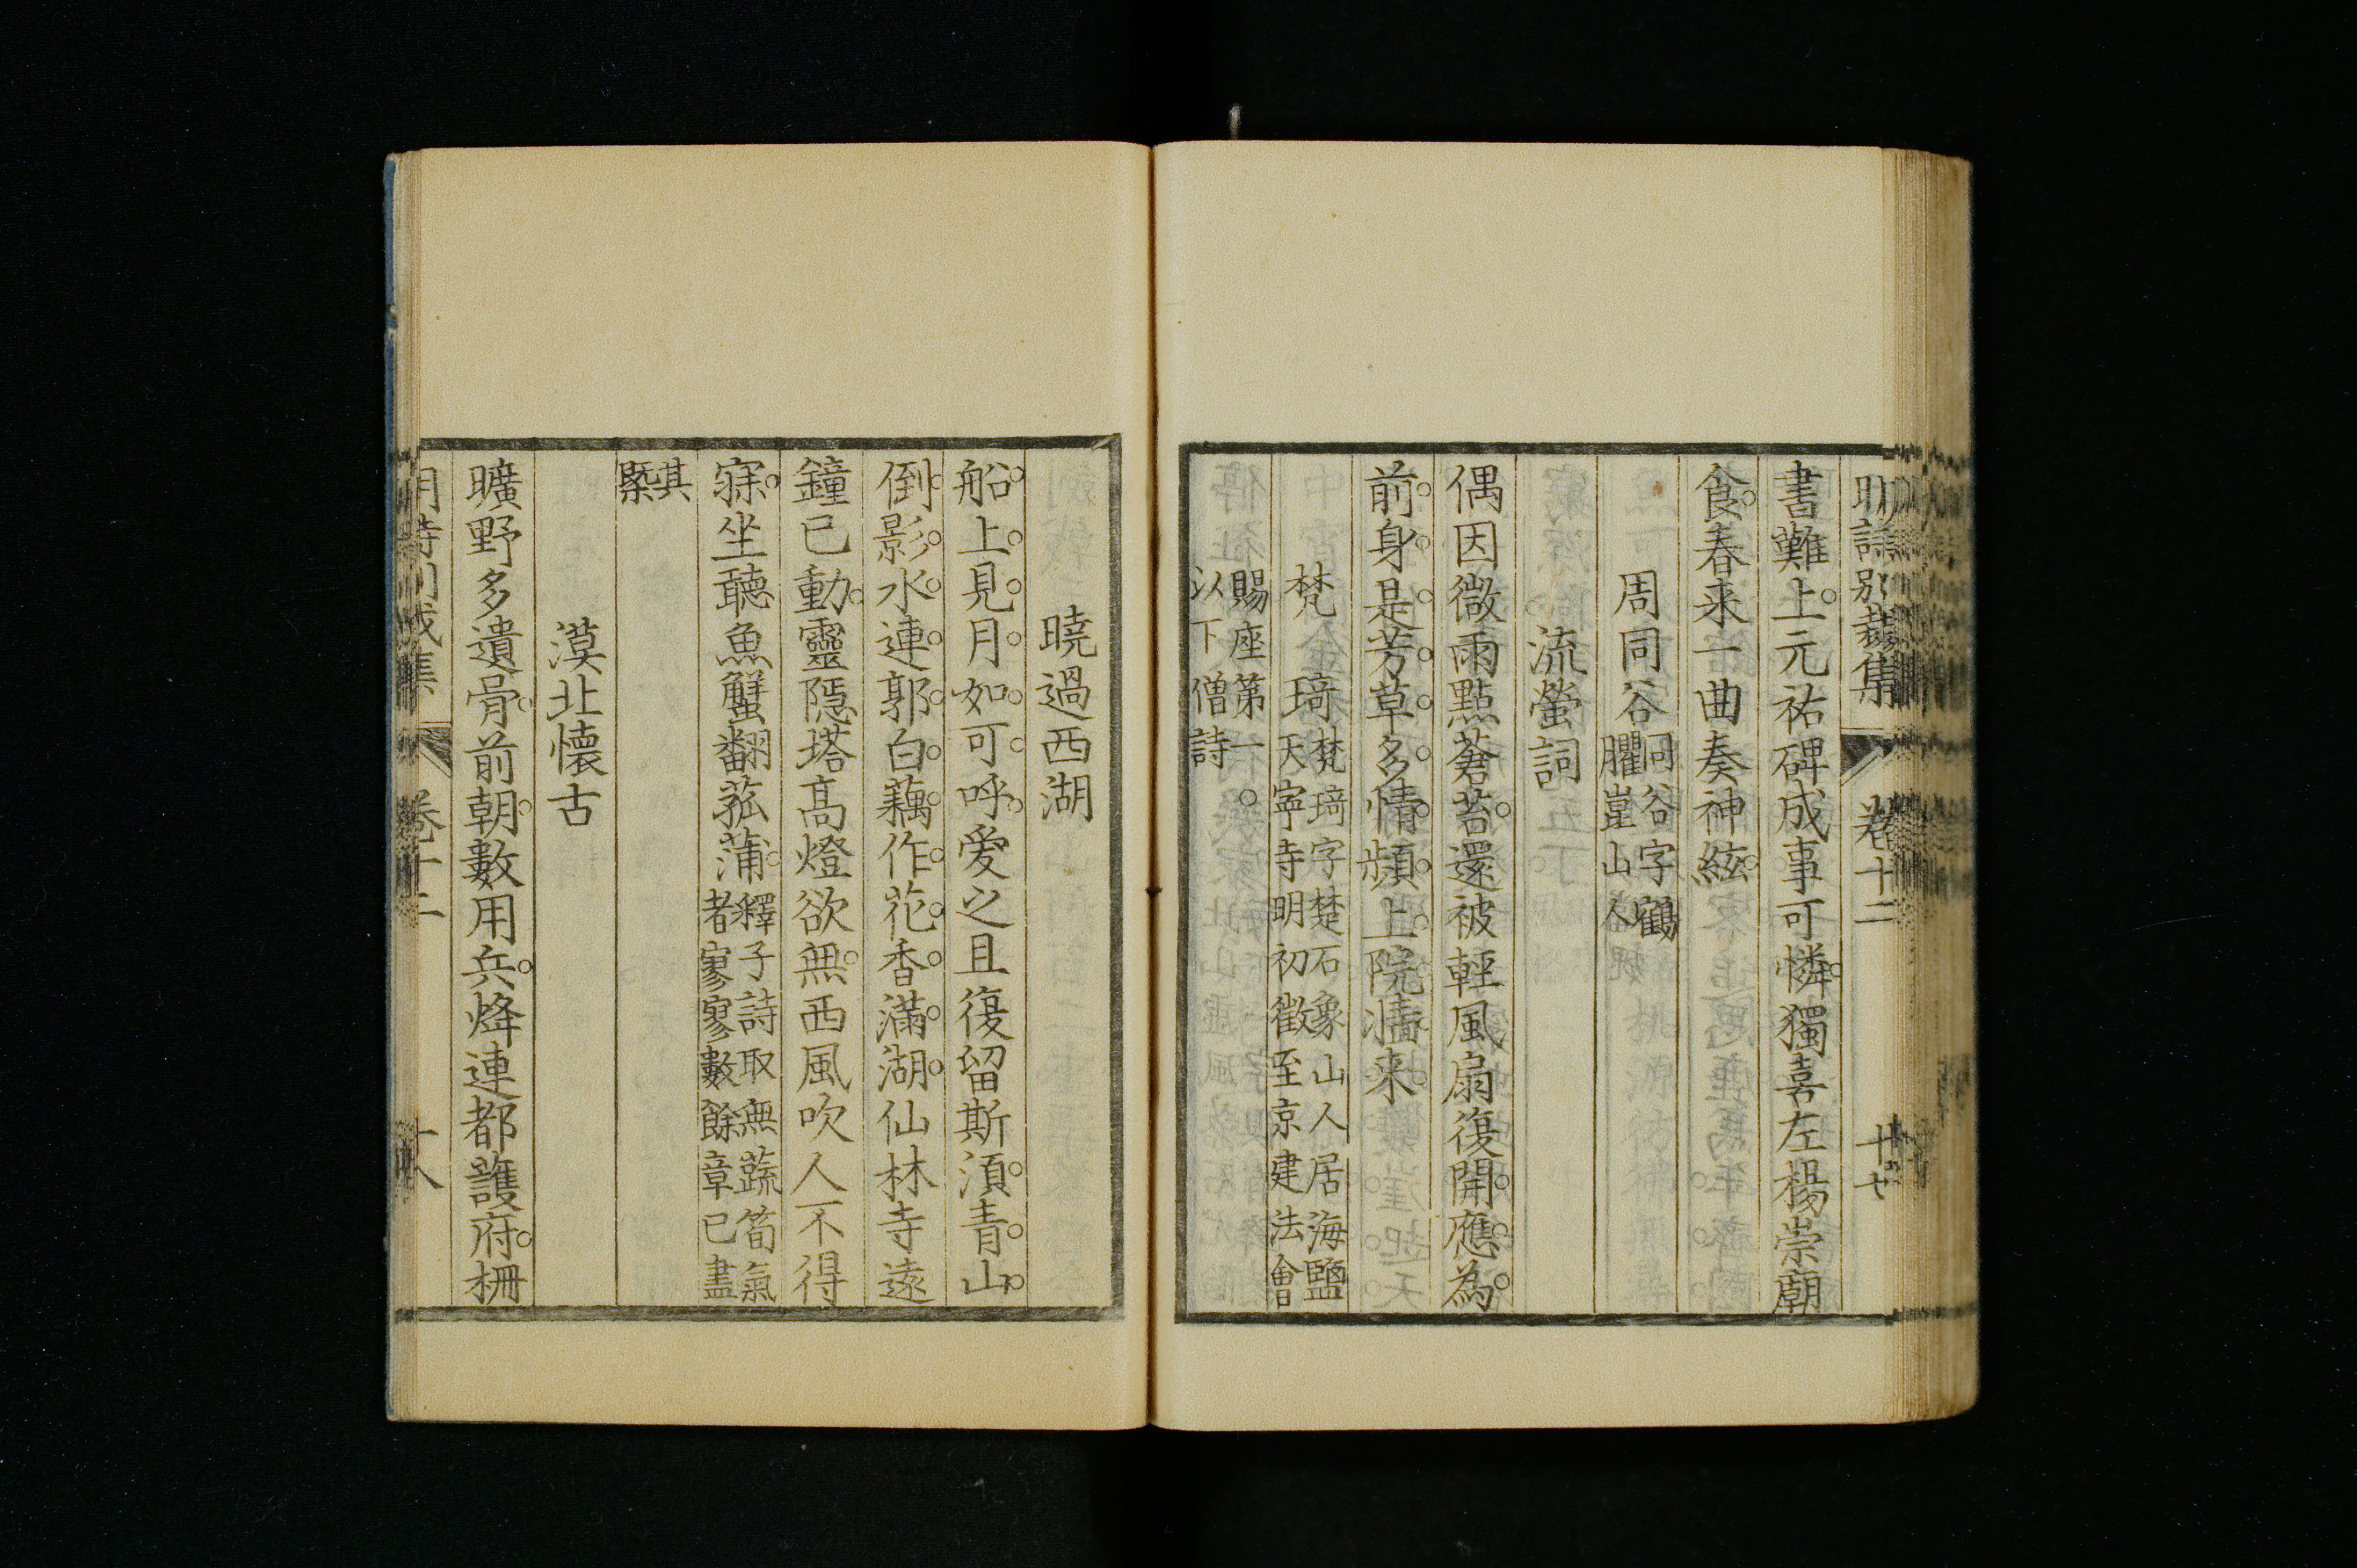 明詩別裁集 卷十二 十七
書難上元祐碑成事可憐獨喜左楊崇廟
食春来一曲奏神絃
周同谷同谷字鶴臞崑山人
流螢詞
偶因微雨點蒼苔還被輕風扇復開應為
前身是芳草多情頻上院牆来
梵琦梵琦字楚石象山人居海鹽天寧寺明初徵至京建法會
賜座第一以下僧詩
曉過西湖
船上見月如可呼愛之且復留斯須青山
倒影水連郭白藕作花香滿湖仙林寺遠
鐘已動靈隱塔髙燈欲無西風吹人不得
寐坐聽魚蟹翻菰蒲釋子詩取無蔬筍氣者寥寥數餘章已盡
其槩
漠北懷古
曠野多遺骨前朝數用兵烽連都護府柵
明詩別裁集 卷十二 十八